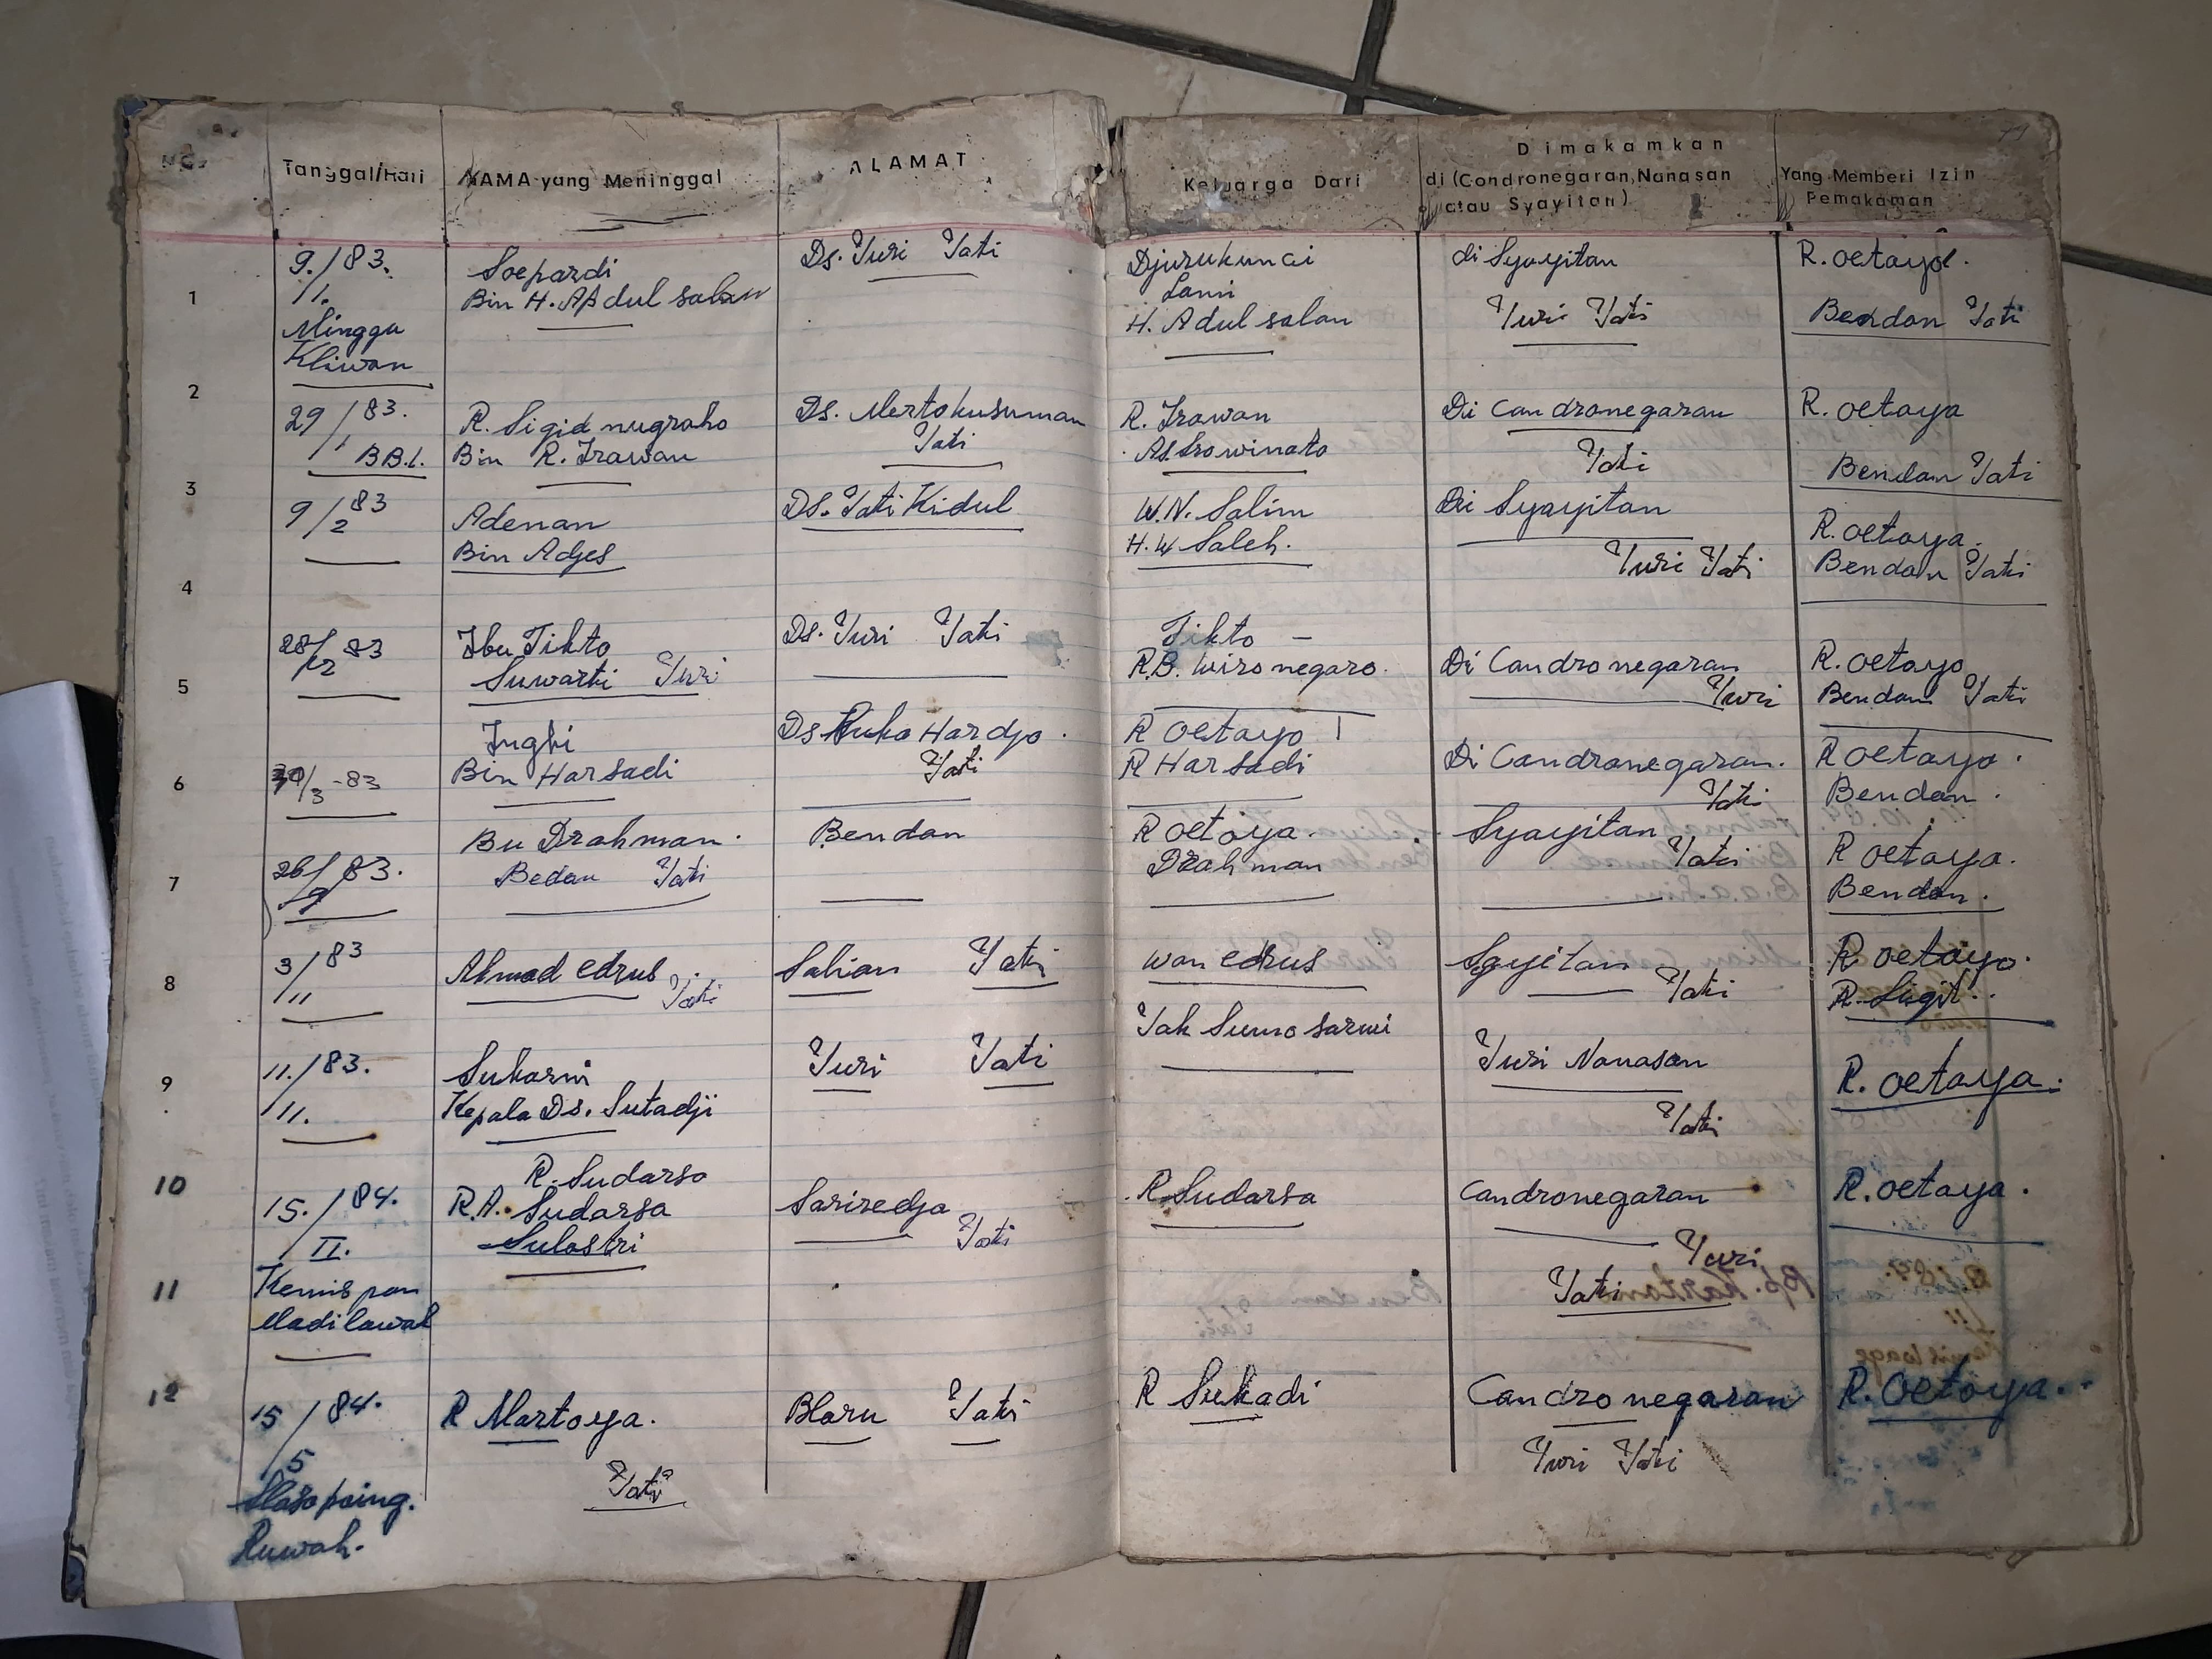 No. Tanggal/Hari NAMA yang Meninggal ALAMAT Keluarga Dari Dimakamkan di (Condronegaran, Nanasan atau Syayitan) Yang Memberi Izin Pemakaman
1
9./83.
/1.
Minggu
Kliwon
Soepardi
Bin H. Abdul salam
Ds. Yuri Yati
Djurukunci
Lami
H. Adul salan
di Syayitan
Yuri Yati
R. oetoyo.
Bendan Yati
2
29/83.
/1 BB.l.
R. Sigid nugroho
Bin R. Irawan
Ds. Mertokusuman
Yati
R. Irawan
Astrowinoto
Di Candronegaran
Yati
R. oetoyo
Bendan Yati
3
9/2 83
Adenan
Bin Adjes
Ds. Yati Kidul
W.N. Salim
H.W Saleh.
Di Syayitan
Yuri Yati
R. oetoyo.
Bendan Yati
4
28/2 83
Ibu Tikto
Suwarti Yuri
Ds. Yuri Yati
Tikto —
R.B. Wironegoro.
Di Candronegaran
Yuri
R. oetoyo
Bendan Yati
5
/3-83
Inghi
Bin Harsadi
Ds Suko Hardjo.
Yati
R oetoyo
R Harsadi
Di Candronegaran.
Yati
R oetoyo.
Bendan.
6
26/83.
Bu Drahman.
Bedan Yati
Bendan
R oetoyo.
Drahman
Syayitan
Yati
R oetoyo.
Bendan.
7
3/83
/11
Ahmad edrus
Yati
Salian Yati
wan edrus
Sgyitan
Yati
R oetoyo.
R. Sigit.
8
11./83.
/11.
Sukarni
Kepala Ds. Sutadji
Yuri Yati
Yak Sumo sarmi
Yuri Nanasan
Yati
R. oetoyo.
9
10
15./84.
/II.
Kemis pon
Madilawal
R. Sudarso
R.A. Sudarsa
Sulastri
Sariredjo
Yati
R. Sudarsa
Candronegaran
Yuri
Yati
R. oetoyo.
11
12
15/84.
/5
Slasa paing.
Ruwah.
R Martoyo.
Yati
Blaru Yati
R Sukadi
Candronegaran
Yuri Yati
R. Oetoyo.